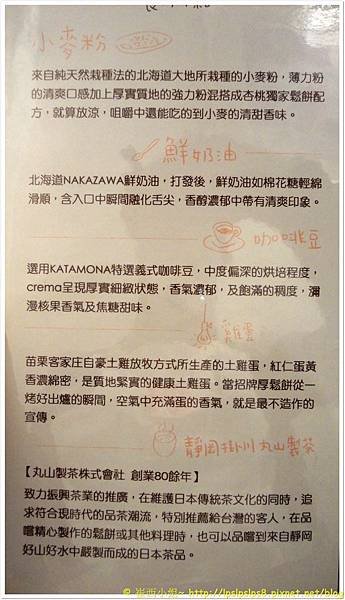 小麥粉
來自純天然栽種法的北海道大地所栽種的小麥粉，薄力粉
的清爽口感加上厚實質地的強力粉混搭成杏桃獨家鬆餅配
方，就算放涼，咀嚼中還能吃的到小麥的清甜香味。
鮮奶油
北海道NAKAZAWA鮮奶油，打發後，鮮奶油如棉花糖輕綿
滑順，含入口中瞬間融化舌尖，香醇濃郁中帶有清爽印象。
咖啡豆
選用KATAMONA特選義式咖啡豆，中度偏深的烘培程度，
crema呈現厚實細緻狀態，香氣濃郁，及飽滿的稠度，瀰
漫核果香氣及焦糖甜味。
雞蛋
苗栗客家庄自豪土雞放牧方式所生產的土雞蛋，紅仁蛋黃
香濃綿密，是質地緊實的健康土雞蛋。當招牌厚鬆餅從一
烤好出爐的瞬間，空氣中充滿蛋的香氣，就是最不造作的
宣傳。
靜岡掛川丸山製茶
【丸山製茶株式會社 創業80餘年】
致力振興茶業的推廣，在維護日本傳統茶文化的同時，追
求符合現時代的品茶潮流，特別推薦給台灣的客人，在品
嚐精心製作的鬆餅或其他料理時，也可以品嚐到來自靜岡
好山好水中嚴製而成的日本茶品。